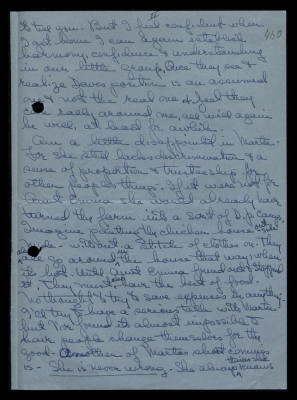 to tell you - But I feel confident when
I get home I can again establish
harmony, confidence & understanding
in our little group. Once they see &
realize Daves position is an assumed
one & not the real one & feel they
can rally around me, all will again
be well, at least for awhile.
Am a little disappointed in Martie -
For she still lacks discrimination & a
sense of proportion & trusteeship for
other peoples things. If it were not for
Aunt Emma she would already have
turned the farm into a sort of D.P. Camp.
Imagine painting the chicken house
- without a stitch of clothes on. They
go around the house that way when
its hot. Until Aunt Emma found out & stopped
it. They must have the best of food -
No thought & try to save expenses in anything.
I'll try to have a serious talk with Martie
but I've found its almost impossible to
have people change themselves for the
good - Another of Marties short comings
is - She is never wrong. She always knows
460